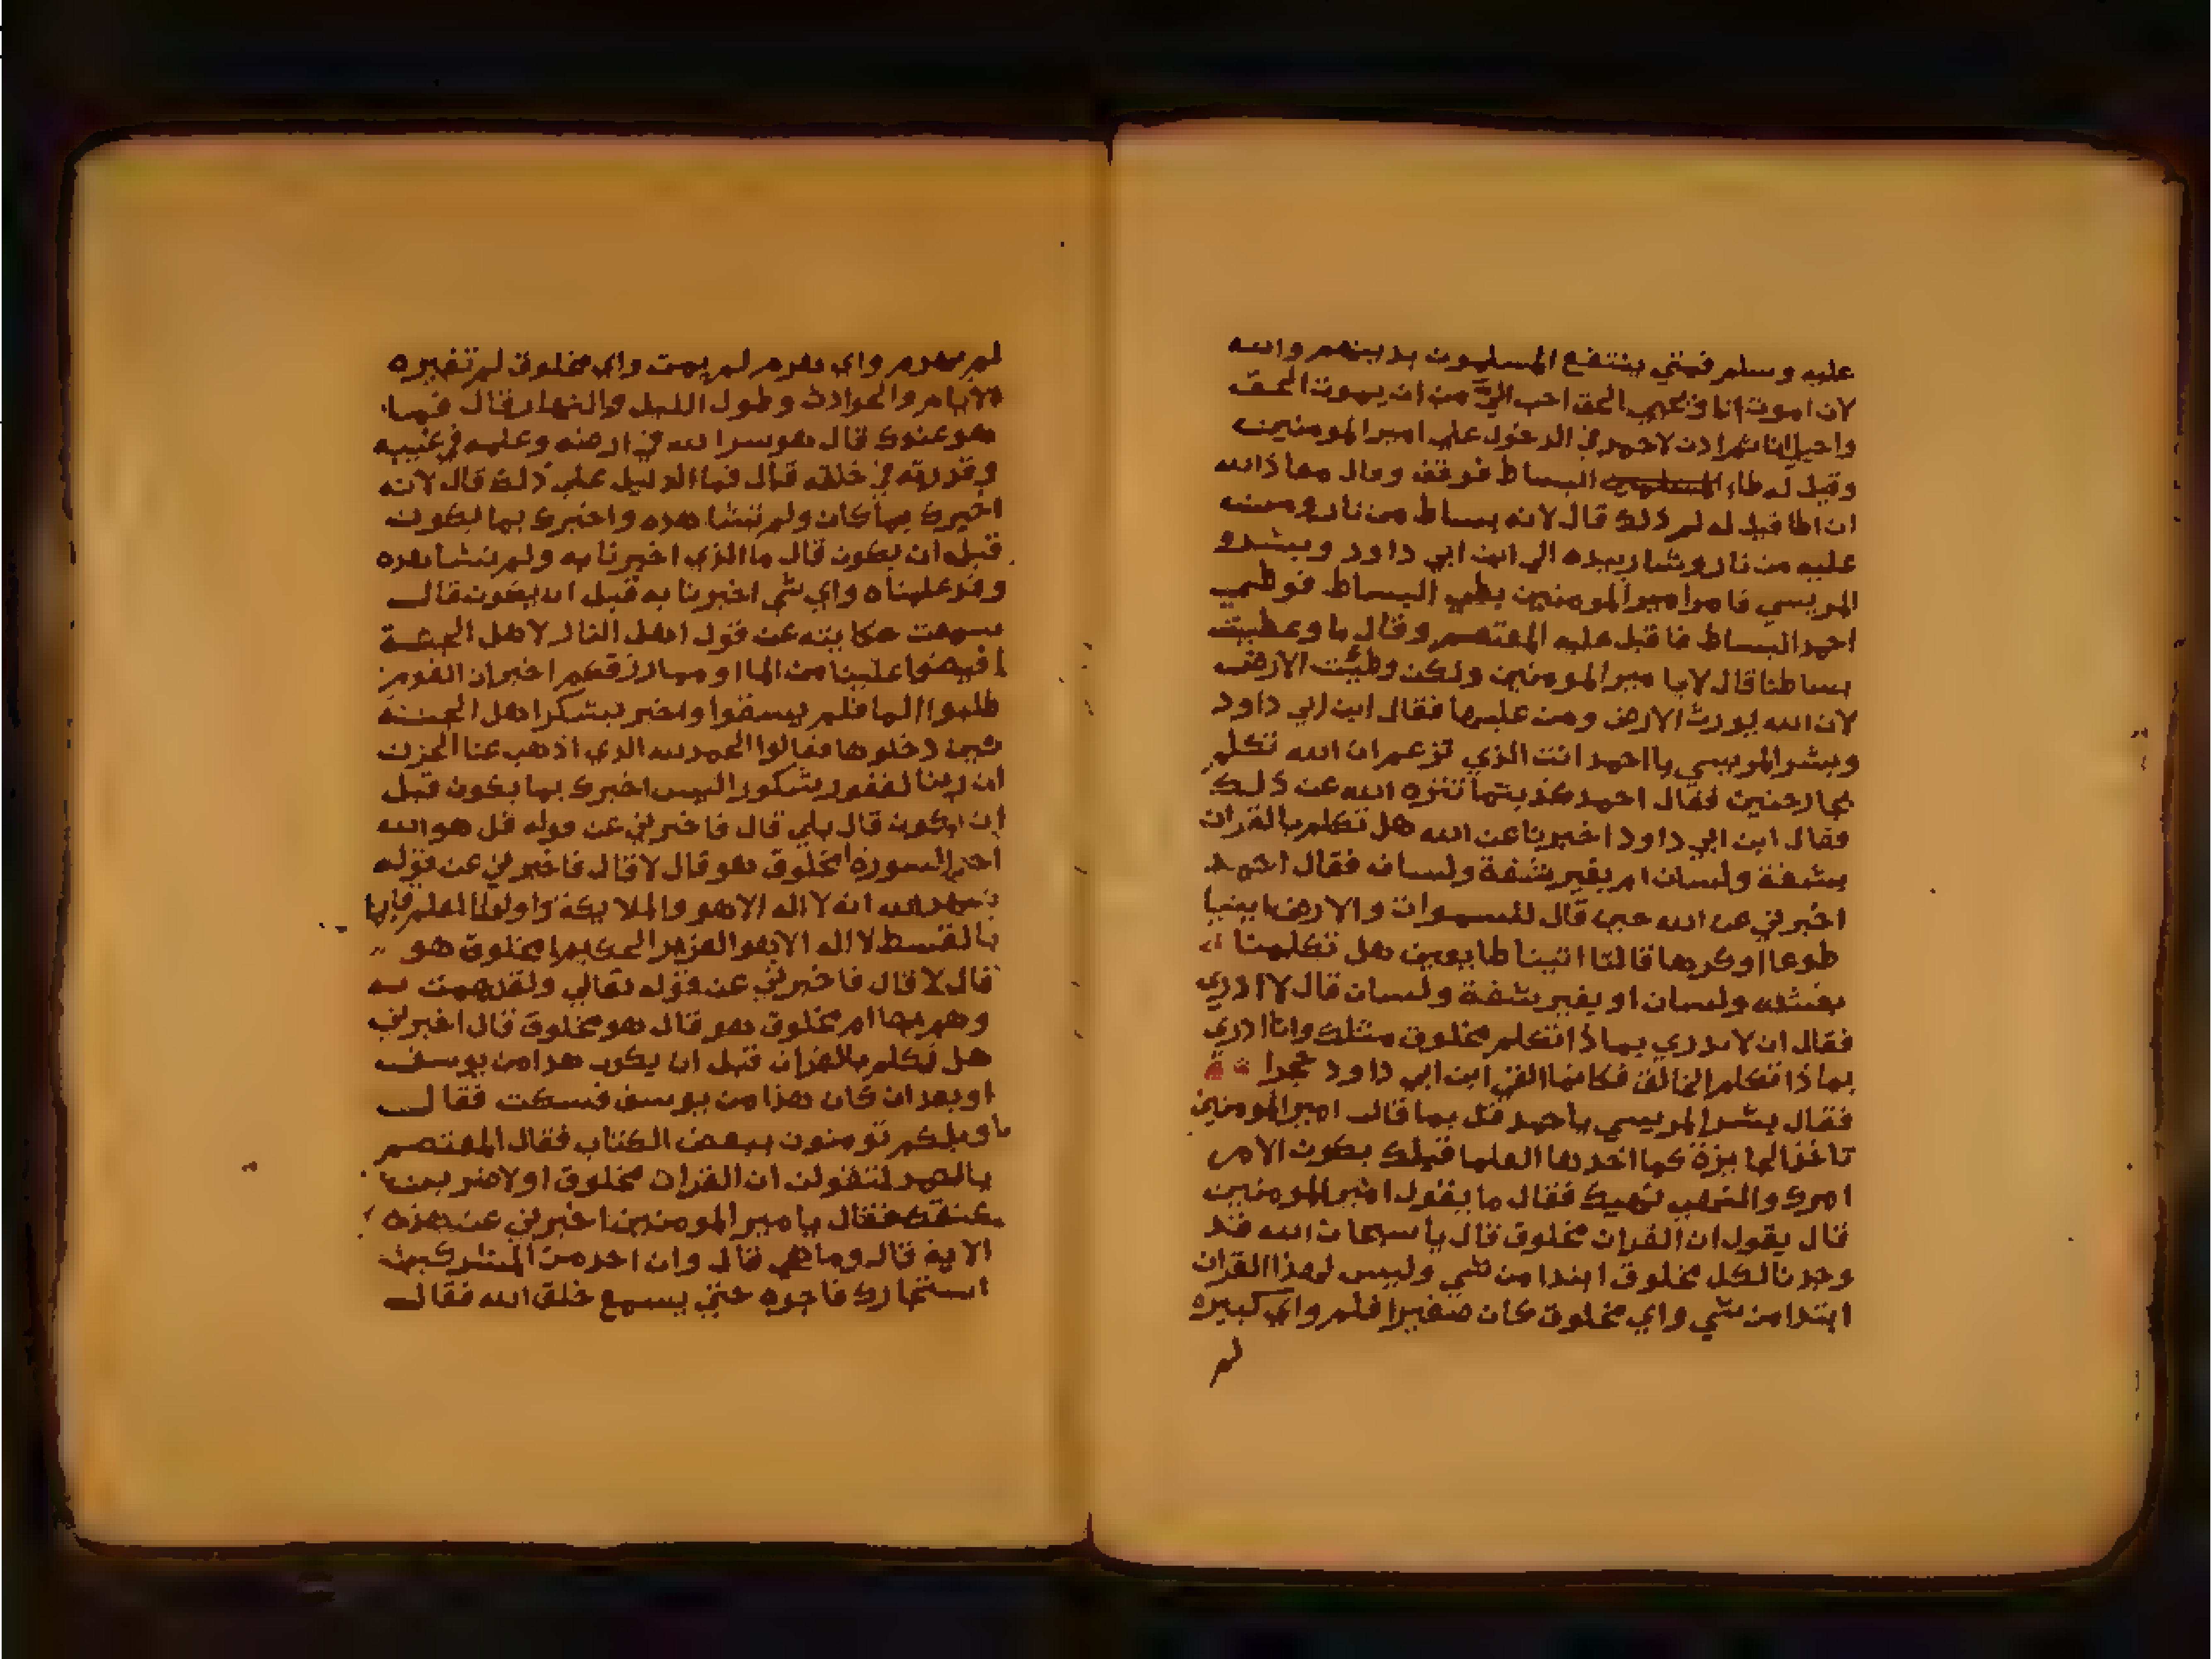 عليه وسلم فمتي ينتفع المسلمون بدينهم والله
لان اموت انا ويحيي الحق احب الي من ان يموت الحق
واحيا انا ثم اذن لاحمد في الدخول علي امير المومنين
وقيل له طاء البساط فوقف وقال معاذ الله
ان اطا قيل له لم ذلك قال لانه بساط من نار ومن
عليه من نار وشار بيده الي ابن ابي داود وبشر
المريسي فامر امير المومنين بطي البساط فوطي
احمد البساط فاقبل عليه المعتصم وقال ما وطيت
بساطنا قال لا يا مير المومنين ولكن وطئت الارض
لان الله يورث الارض ومن عليها فقال ابن ابي داود
وبشر المريسي يا احمد انت الذي تزعم ان الله تكلم
بجارحتين فقال احمد كذبتما تنزه الله عن ذلك
فقال ابن ابي داود اخبرنا عن الله هل تكلم بالقران
بشفة ولسان ام بغير شفة ولسان فقال احمد
اخبرني عن الله حين قال للسموات والارض ايتيا
طوعا او كرها قالتا اتينا طايعين هل تكلمتا
بشفه ولسان او بغير شفة ولسان قال لا ادري
فقال ان لا تدري بماذا تكلم مخلوق مثلك وانا ادري
بماذا تكلم الخالق فكانما القم ابن ابي داود حجرا
فقال بشر المريسي يا حمد قل بما قال امير المومنين
تاخذ الجايزة كما اخدها العلما قبلك يكون الامر
امرك والنهي نهيك فقال ما يقول امير المومنين
قال يقول ان القران مخلوق قال يا سبحان الله قد
وجدنا لكل مخلوق ابتدا من شي وليس لهذا القران
ابتدا من شي واي مخلوق كان صغيرا فلم واي كبيره
لم
لم يهرم واي هرم لم يمت واي مخلوق لم تغيره
الايام والحوادث وطول الليل والنهار قال فما
هو عندك قال هو سر الله في ارضه وعلمه في غيبه
وقدرته في خلقه قال فما الدليل علي ذلك قال لانه
اخبرك بما كان ولم تشاهده واخبرك بما يكون
قبل ان يكون قال ما الذي اخبرنا به ولم نشاهده
وقد علمناه واي شي اخبرنا به قبل ان يكون قال
سمعت حكايته عن قول اهل النار لاهل الجنة
افيضوا علينا من الما او مما رزقكم اخبر ان القوم
طلبوا الما فلم يسقوا واخبر بشكر اهل الجنة
حين دخلوها فقالوا الحمد لله الذي اذهب عنا الحزن
ان ربنا لغفور شكور اليس اخبرك بما يكون قبل
ان يكون قال بلي قال فاخبرني عن قوله قل هو الله
احد السورة امخلوق هو قال لا قال فاخبرني عن قوله
شهد الله انه لا اله الا هو والملايكة واولوا العلم قايما
بالقسط لا اله الا هو العزيز الحكيم امخلوق هو
قال لا قال فاخبرني عن قوله تعالي ولقد همت به
وهم بها ام مخلوق هو قال هو مخلوق قال اخبرني
هل تكلم بالقران قبل ان يكون هذا من يوسف
او بعد ان كان هذا من يوسف فسكت فقال
ما ويلكم تومنون ببعض الكتاب فقال المعتصم
يا احمد لتقولن ان القران مخلوق او لاضربن
عنقك فقال يا مير المومنين اخبرني عن هذه
الاية قال وما هي قال وان احد من المشركين
استجارك فاجره حتي يسمع خلق الله فقال